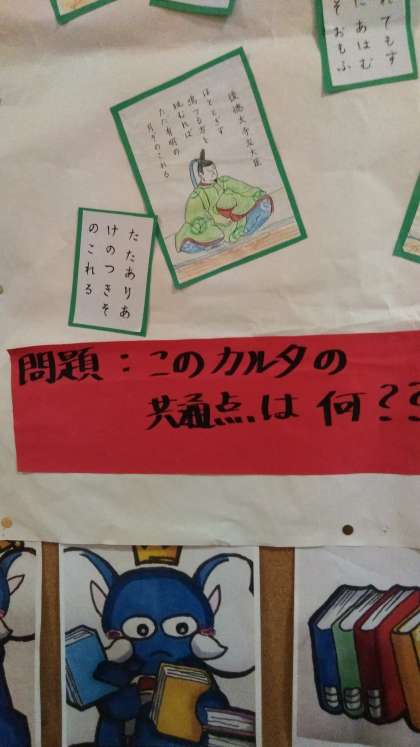 れてもす
にあはむ
そおもふ
後徳大寺左大臣
ほととぎす
鳴つる方を
眺むれば
ただ有明の
月ぞのこれる
たたありあ
けのつきそ
のこれる
問題：このカルタの
共通点は何??